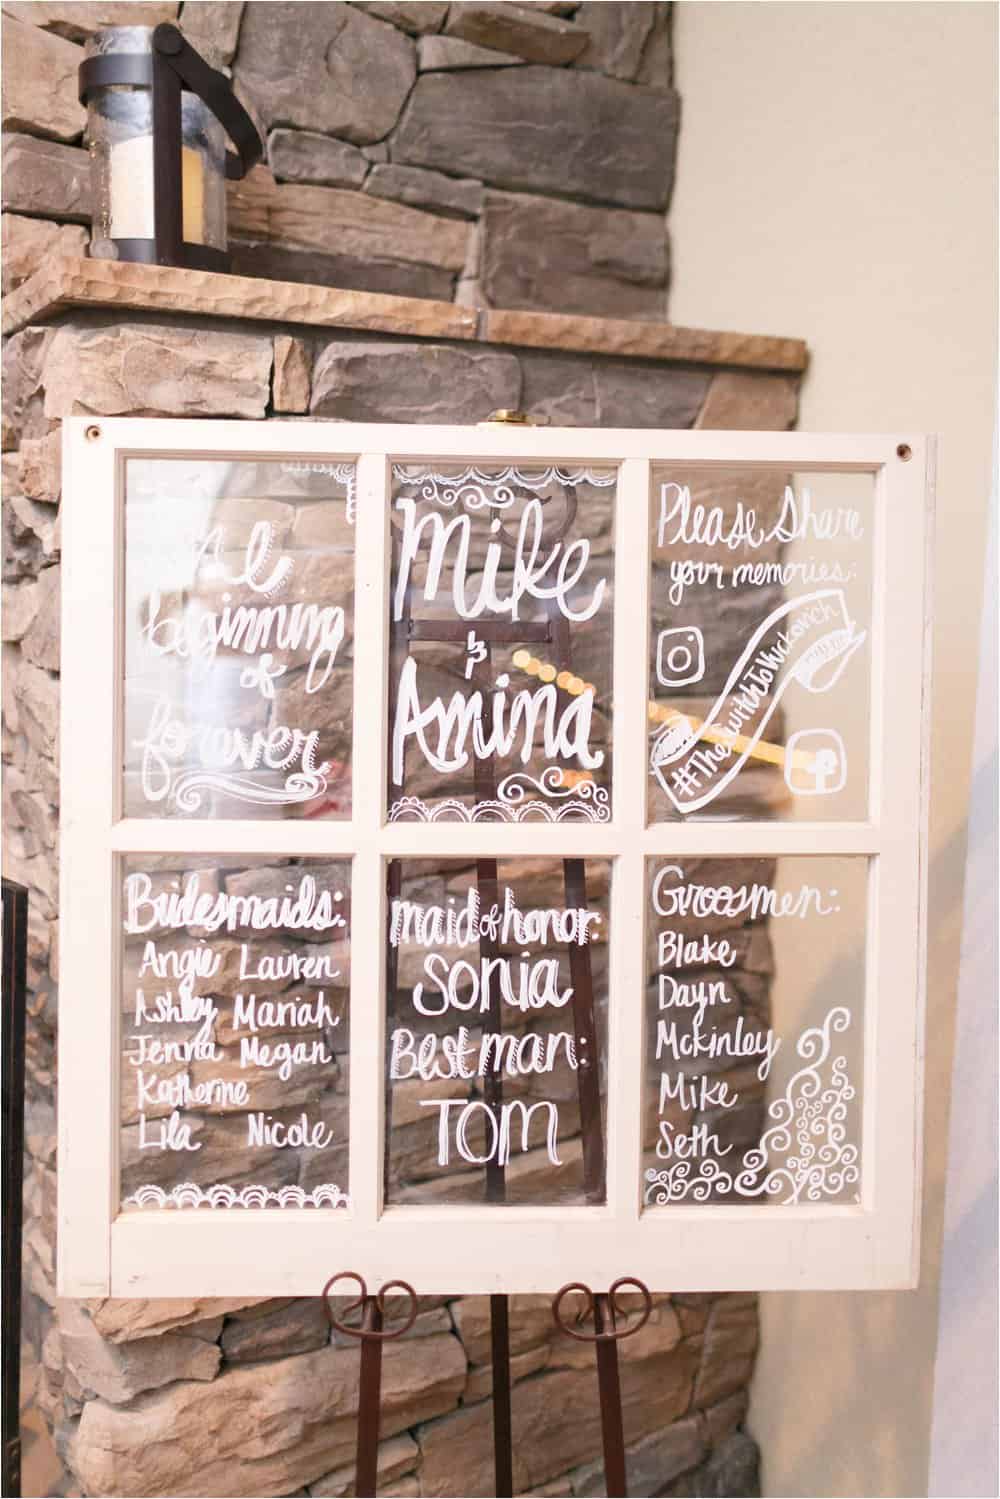 beginning
of
forever
Mike
&
Amina
Please Share
your memories:
Bridesmaids:
Angie Lauren
Ashley Mariah
Jenna Megan
Katherine
Lila Nicole
maid of honor:
Sonia
Best man:
TOM
Groosmen:
Blake
Dayn
Mckinley
Mike
Seth